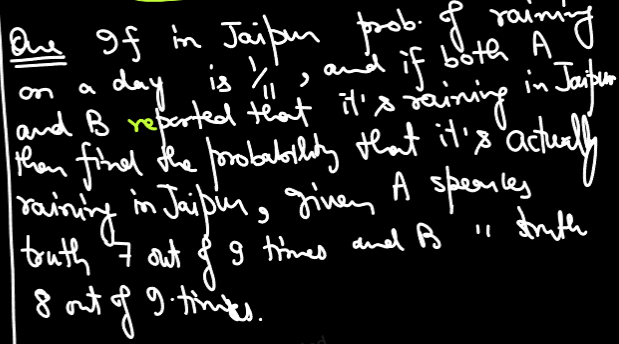 Que If in Jaipur prob. of raining
on a day is 1/11, and if both A
and B reported that it's raining in Jaipur
then find the probability that it's actually
raining in Jaipur, given A speaks
truth 7 out of 9 times and B " truth
8 out of 9 times.